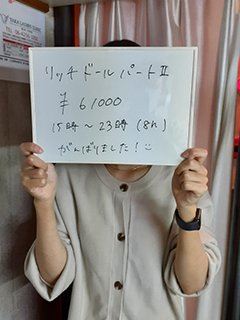 リッチドールパートⅡ
¥61000
15時～23時(8h)
がんばりました!